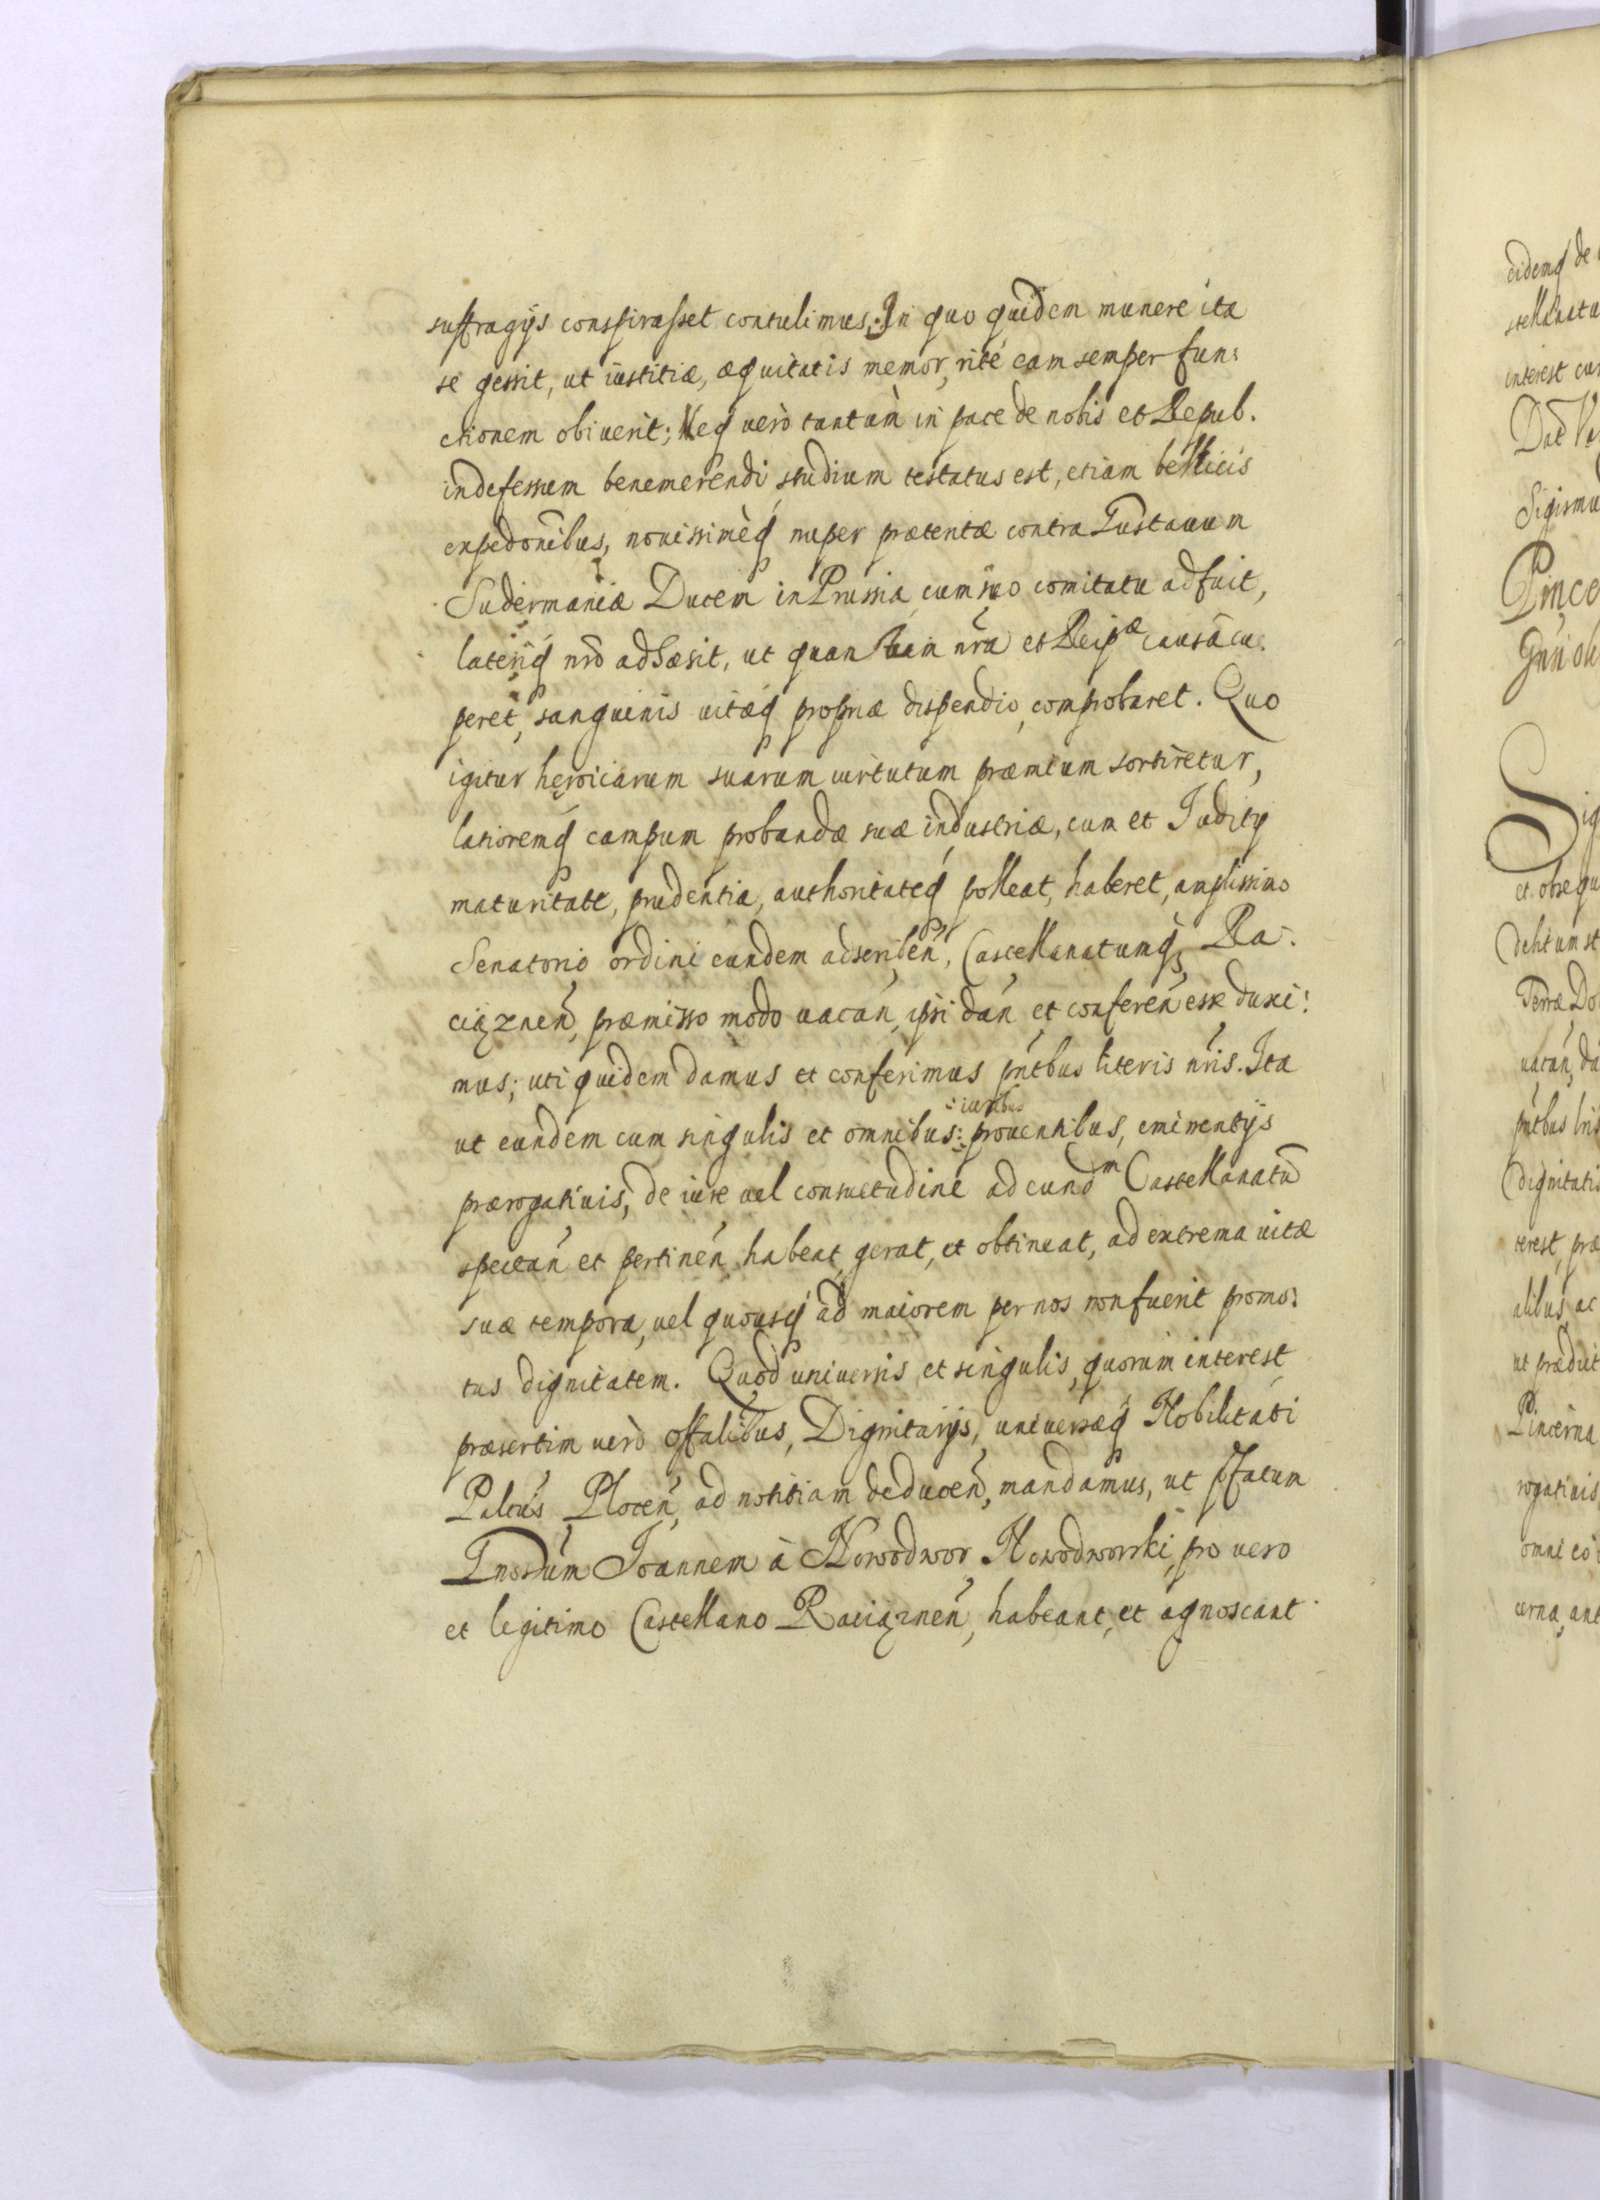 suffragijs conspirasset contulimus. In quo quidem munere ita
se gessit, ut iustitiæ, æquitatis memor, rité eam semper fun:
ctionem obiuerit; Neq́ verò tantùm in pace de nobis et Repub.
indefessum benemerendi studium testatus est, etiam bellicis
expedonibus, nouissimèq́ nuper prætentæ contra Gustauum
Sudermaniæ Ducem in Prussia, cum suo comitatu adfuit,
lateriq́ nrō adhæsit, ut quan
et Reipæ causā cu:
peret, sanguinis uitæq́ propriæ dispendio comprobaret. Quo
igitur heroicarum suarum uirtutum præmium sortiretur,
latioremq́ campum probandæ suæ industriæ, cum et Judicij
maturitate, prudentia, authoritateq́ polleat, haberet, amplissimo
Senatorio ordini eundem adscriben̄, Castellanatumq́ Ra:
ciąznen̄, præmisso modo uacan̄, ipsi dan̄ et conferen̄ esse duxi:
mus; uti quidem damus et conferimus pn̄tbus literis nr̄is. Ita
:iuribus
ut eundem cum singulis et omnibus: prouentibus, eminentijs
prærogatiuis, de iure uel consuetudine ad eundm Castellanatū
spectan̄ et pertinen̄ habeat, gerat, et obtineat, ad extrema uitæ
suæ tempora, uel quousq́ ad maiorem per nos non fuerit promo:
tus dignitatem. Quod uniuersis et singulis, quorum interest
præsertim verò offalibus, Dignitarijs, uniuersæq́ Nobilitati
Paltus Plocen̄, ad notitiam deducen̄, mandamus, ut pfatum
Gnosum Joannem à Nowodwor Nowodworski, pro uero
et legitimo Castellano Raciąznen̄, habeant, et agnoscant
eidemq́ de
stellanatu
interest cu
Dat Va
Sigismu
Pince
Gnn ol
Sig
et obsequ
dehtum st
Terræ Do
uacan̄, da
pn̄tbus lris
dignitatis
terest, præ
alibus, ac
ut prædict
Pincerna
rogatiuis
omni eo
cerna, ant